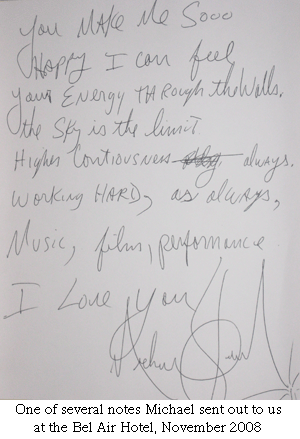 You Make Me Sooo
Happy I can feel
Your Energy Through the Walls.
the Sky is the limit
Higher Contiousness always.
Working HARD, as always,
Music, film, performance
I Love You
One of several notes Michael sent out to us
at the Bel Air Hotel, November 2008